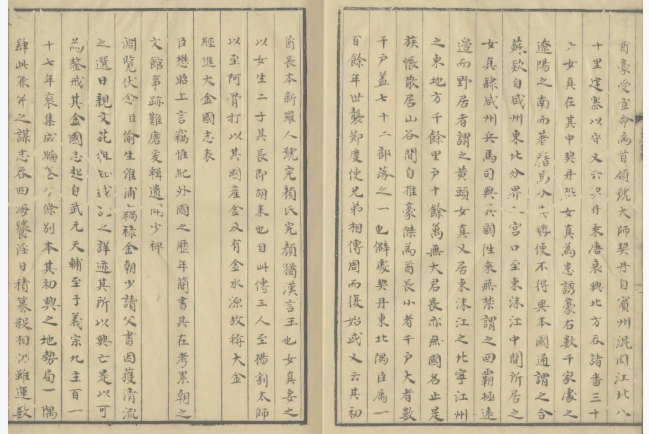 酋豪受宣命為首領號大師契丹自賓州混同江北八
十里建寨以守又云契丹東唐衰興北方吞諸番三十
女真在其中契丹恐女真為患誘豪右數千家處之
遼陽之南而著籍焉分其勢使不得與本國通謂之合
蘇欵自咸州東北分界入宮口至東沫江中間所居之
女真隸咸州兵馬司與其國徃來無禁謂之回霸極遠
邊而野居者謂之黄頭女真又居東沫江之北寧江州
之東地方千餘里户十餘萬無大君長亦無國名止是
族帳散居山谷間自推豪傑為酋長小者千户大者數
千户蓋七十二部落之一也僻處契丹東北隅臣屬一
百餘年世襲節度使兄弟相傳周而復始或又云其初
酋長本新羅人號完顏氏完顏猶漢言王也女真妻之
以女生二子其長即胡來也自此傳三人至楊割太師
以至阿骨打以其國産金及有金水源故稱大金
經進大金國志表
臣懋昭上言竊惟紀外國之歷年簡書具在考累朝之
文館事跡難賡爰輯遺聞少裨
淵覽伏念臣偷生淮浦竊祿金朝少讀父書因獲清流
之選日親文苑粗知載記之詳迹其所以興亡是以可
為鑒戒其金國志起自武元天輔至于義宗九主百一
十七年裒集成編分條别本其初興之地勢局一隅
肆此豨突之謀志吞四海饕淫日積篡殺相沿雖運數